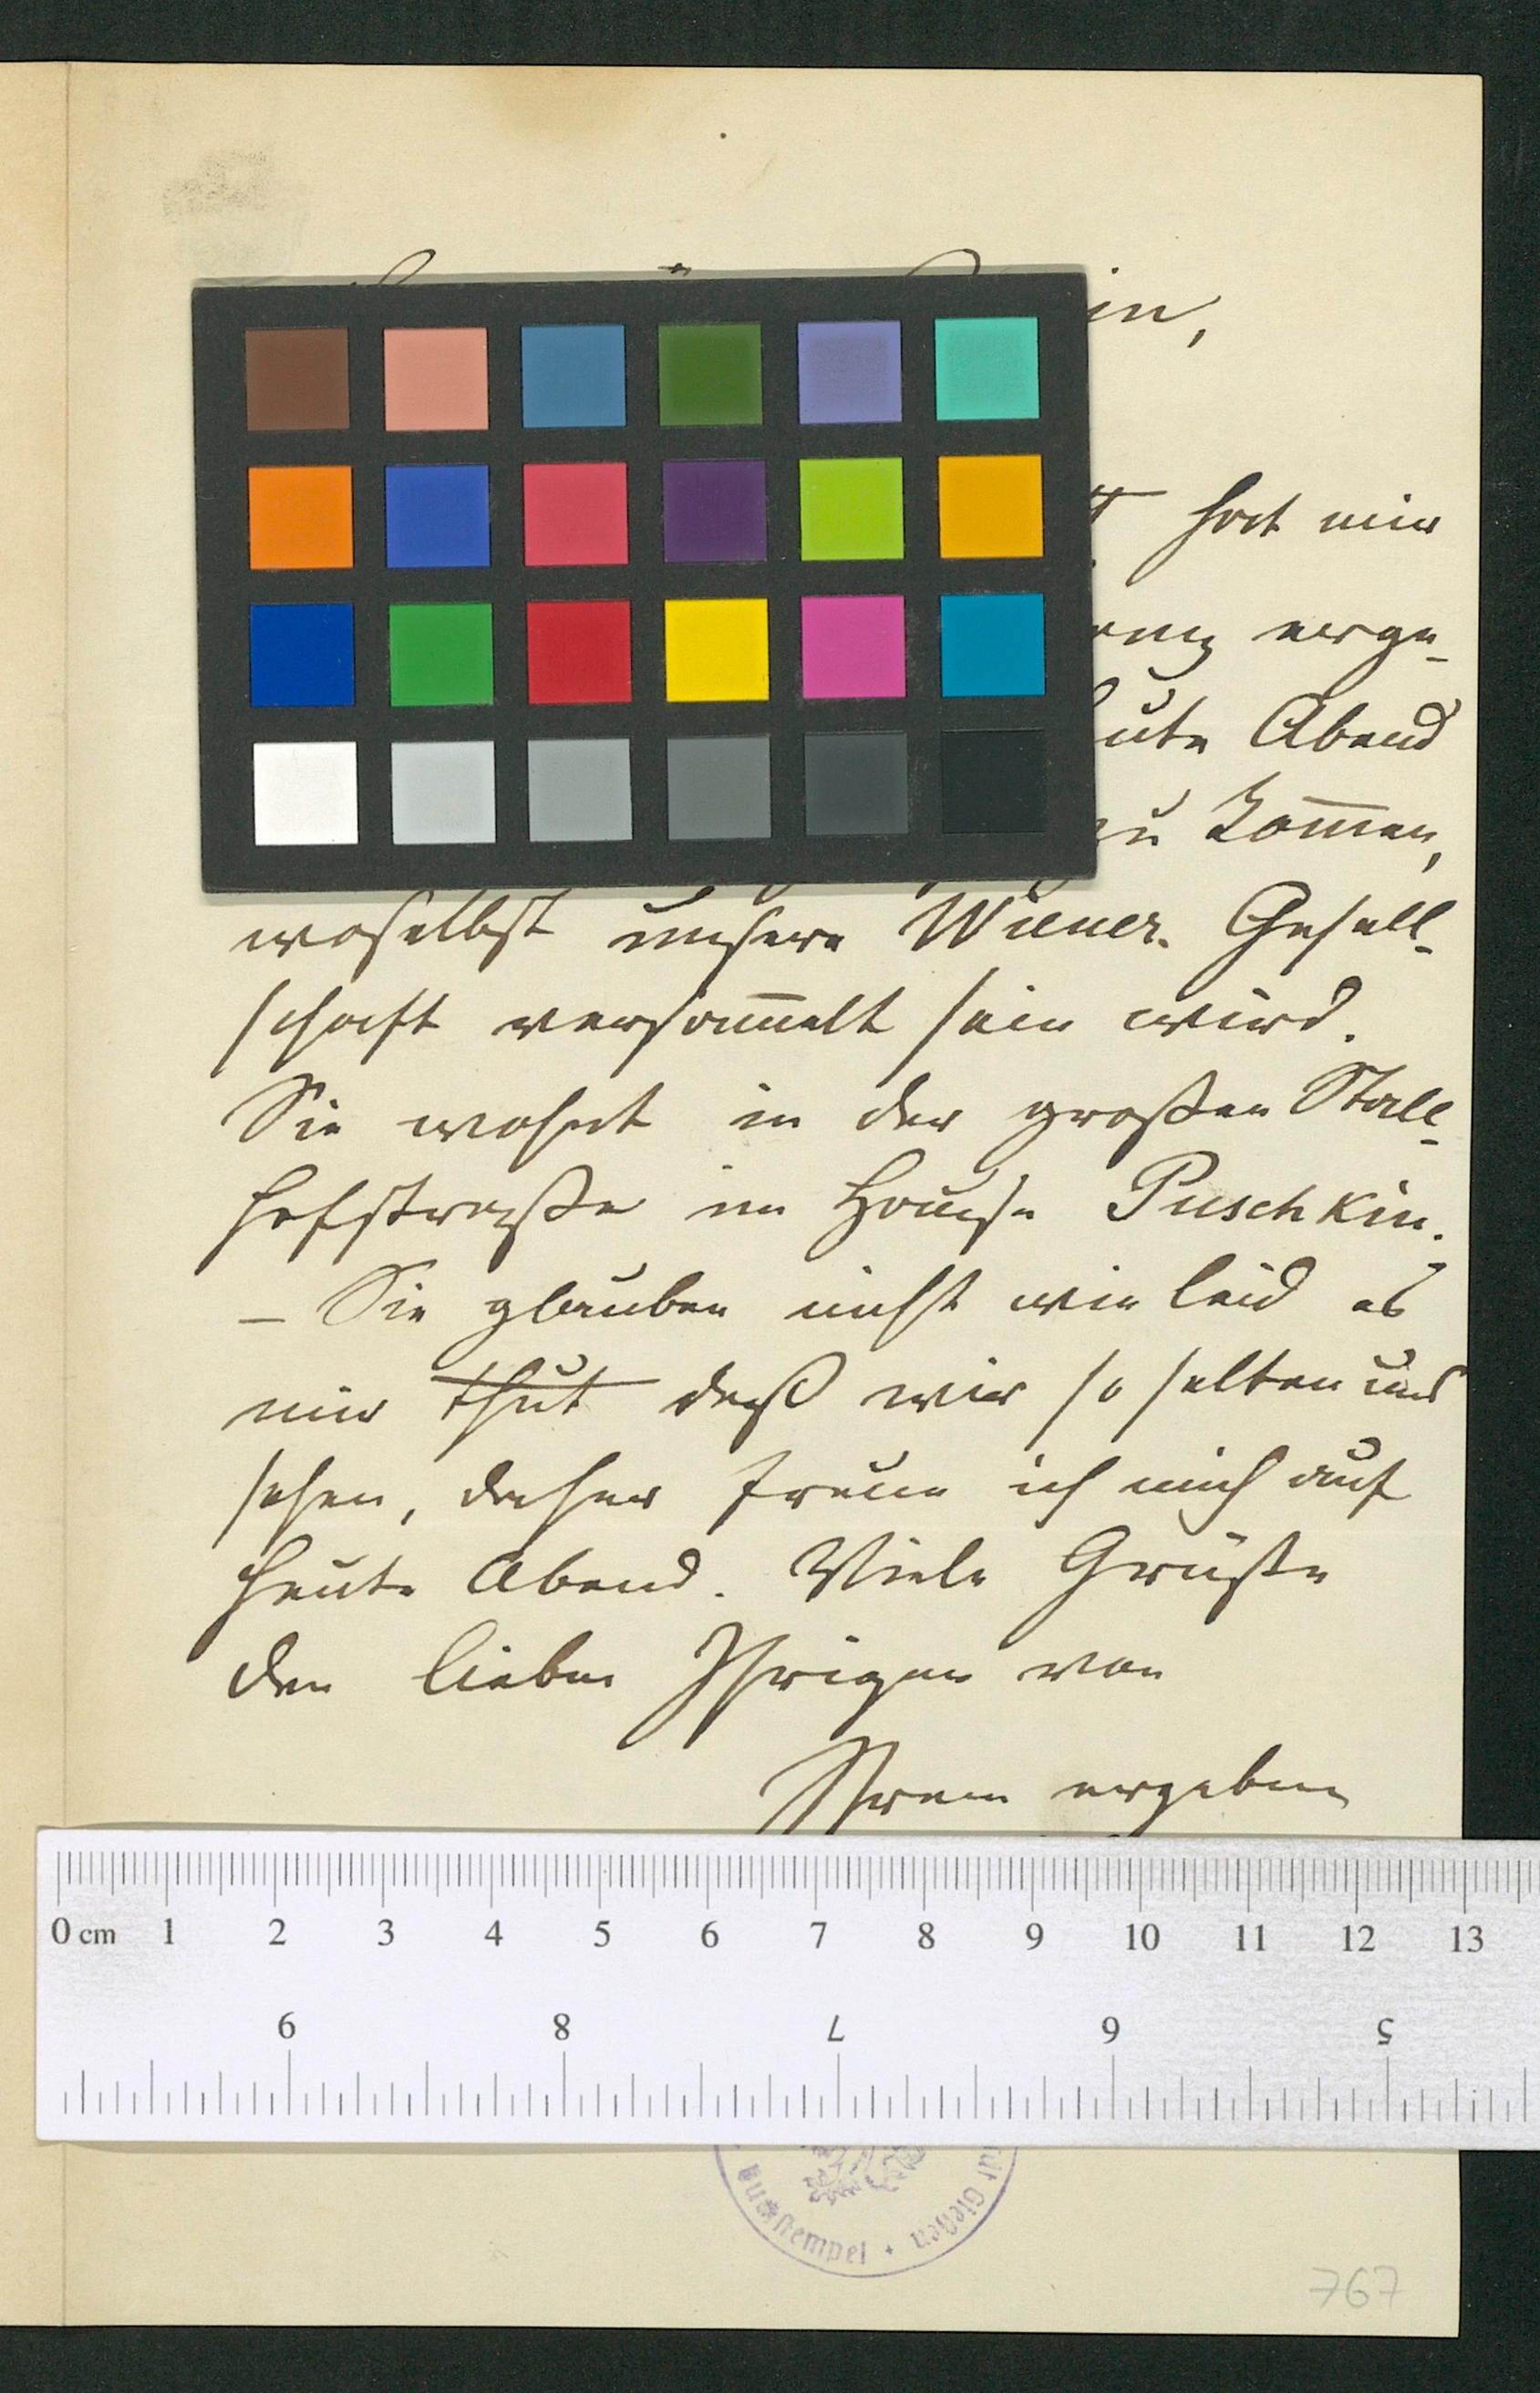 in,
hat mir
erge-
Abend
zu kom̅en,
woselbst unsere Wiener. Gesell-
schaft versam̅elt sein wird.
Sie wohnt in der großen Stall-
hofstraße im Hause Puschkin.
– Sie glauben nicht wie leid es
mir thut daß wir so selten uns
sehen, daher freue ich mich auf
heute Abend. Viele Grüße
den lieben Ihrigen von
Ihrem ergebenen
0 cm 1 2 3 4 5 6 7 8 9 10 11 12 13
9 8 7 6 5
Gießen
767